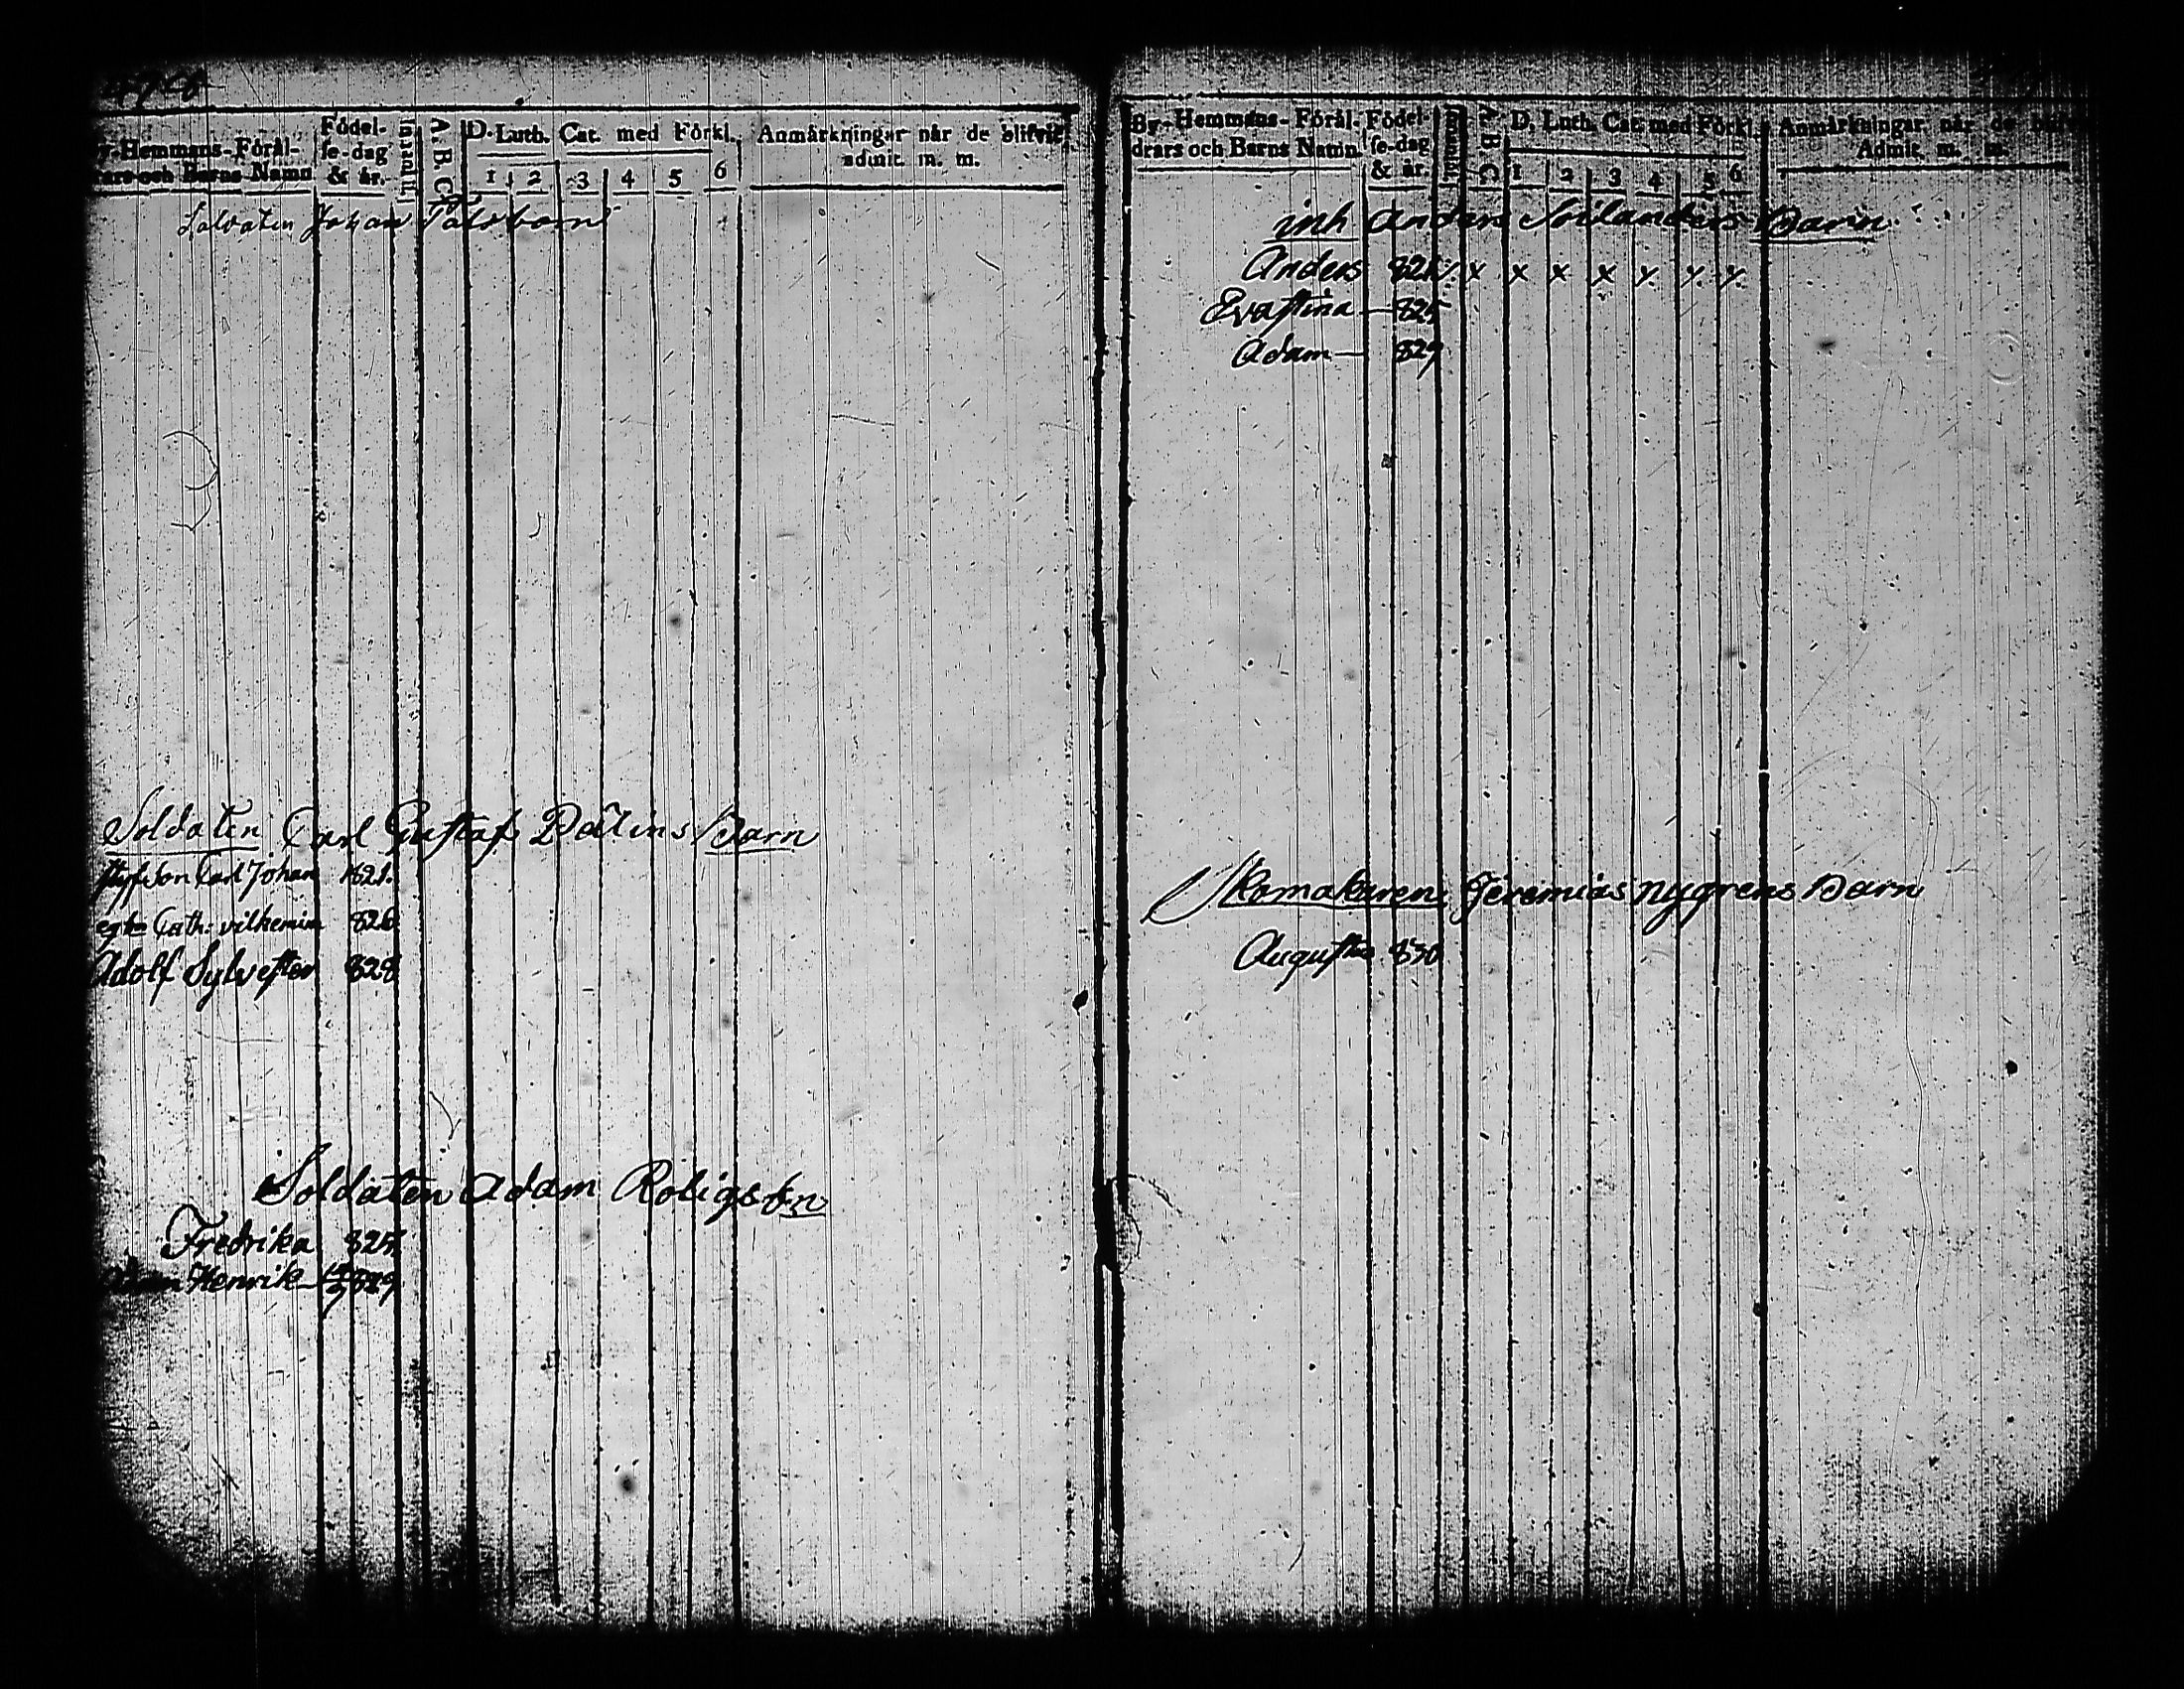 By-Hemmans-Föräl-
drars och Barns Namn
Födel-
se-dag
& år.
A. B. C.
D. Luth. Cat. med Förkl.
1 2 3 4 5 6
Anmärkningar när de blifvit
admit. m. m.
Soldaten Johan
Soldaten Carl Gustaf Dalins Barn
styfson Carl Johan 1821.
Cath: vilhemin 826
Adolf Sylvester 828
Soldaten Adam Roligs b:n
Fredrika 825
Henrik 829
By-Hemmans-Föräl-
drars och Barns Namn
Födel-
se-dag
& år.
A. B. C.
D. Luth. Cat. med Förkl.
1 2 3 4 5 6
Anmärkningar när de
Admit. m. m.
inh Anders Barn
Anders x x x x x x x
Evastina — 825
Adam — 829
Skomakaren Jeremias Nygrens Barn
830